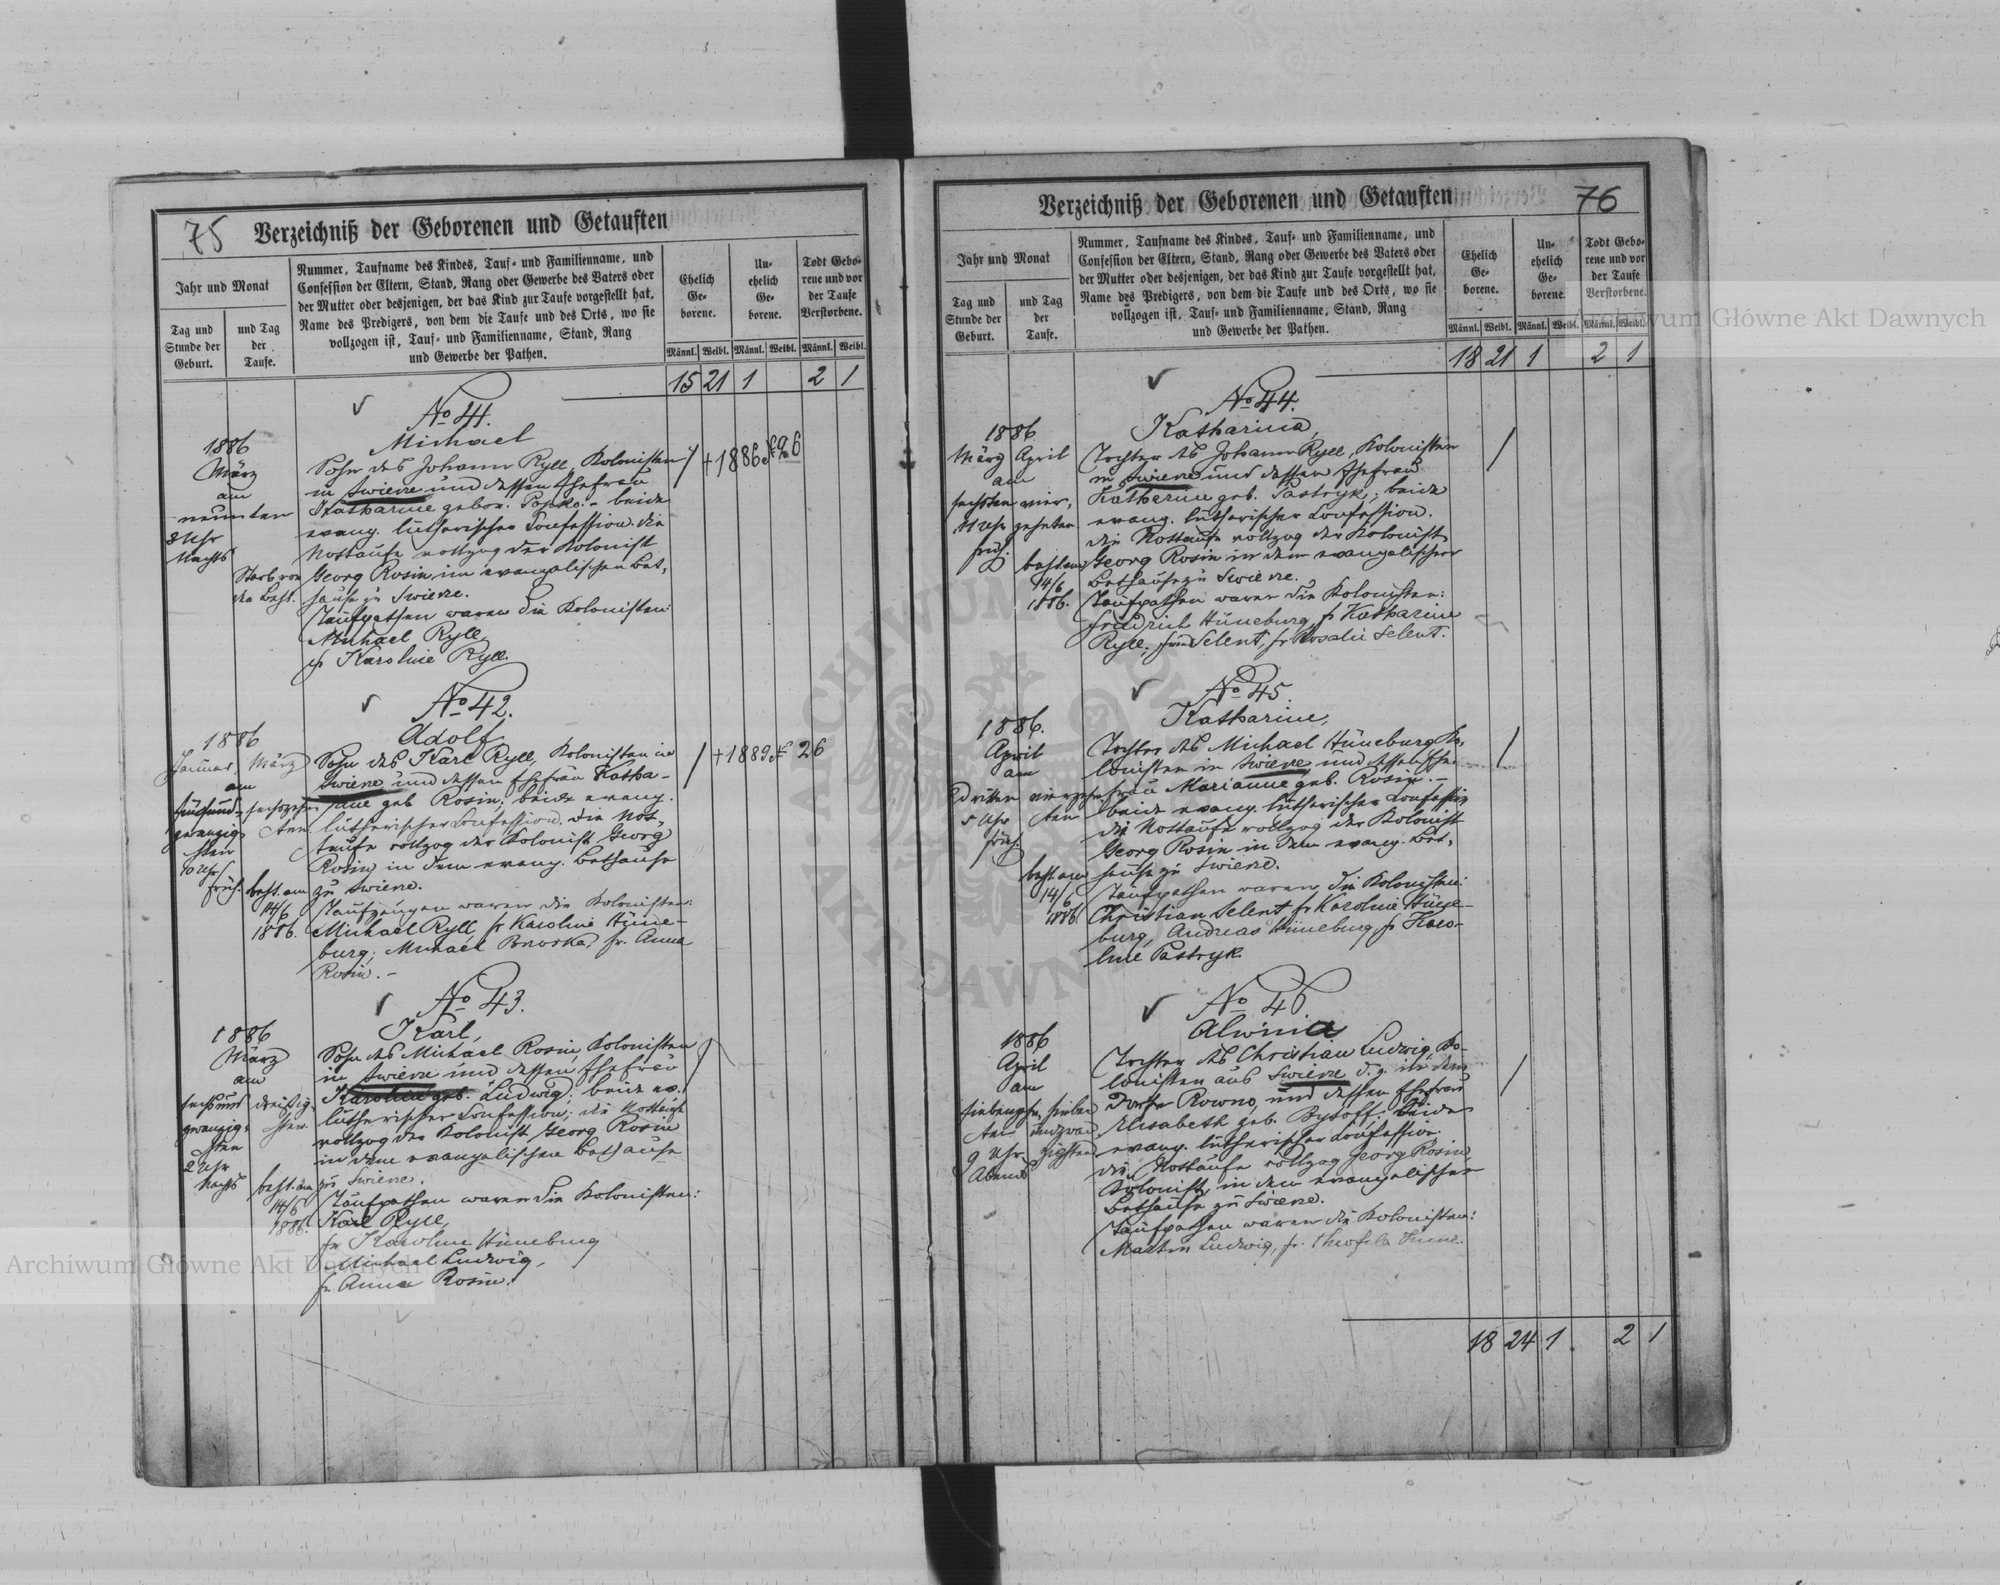 75 Verzeichniß der Geborenen und Getauften
Jahr und Monat
Tag und Stunde der Geburt.
und Tag der Taufe.
Nummer, Taufname des Kindes, Tauf- und Familienname, und
Confession der Eltern, Stand, Rang oder Gewerbe des Vaters oder
der Mutter oder desjenigen, der das Kind zur Taufe vorgestellt hat,
Name des Predigers, von dem die Taufe und des Orts, wo sie
vollzogen ist, Tauf- und Familienname, Stand, Rang
und Gewerbe der Pathen.
Ehelich Ge-borene.
Un-ehelich Ge-borene.
Todt Gebo-rene und vor der Taufe Verstorbene.
Männl. Weibl. Männl. Weibl. Männl. Weibl.
15 21 1 2 1
No 41.
Michael
1886
März
am
neunten
3 Uhr
Nachts
Starb vor
der Best.
Sohn des Johann Ryll, Kolonisten
in Swiene und dessen Ehefrau
Katharine gebor. – beide
evang. lutherischer Confession. die
Nottaufe vollzog der Kolonist
Georg Rosin im evangelischen Bet-
hause zu Swiene.
Taufpathen waren die Kolonisten:
Michael Ryll
fr Karoline Ryll.
+ 1886 № 6
No 42.
Adolf,
1886
Januar März
am
fünfund- sechszehn
zwanzig- ten
sten
10 Uhr
früh. best. am
14/6
1886.
Sohn des Karl Ryll, Kolonisten in
Swiene und dessen Ehefrau Katha-
rine geb Rosin; beide evang.
lutherischer Confession. Die Not-
taufe vollzog der Kolonist Georg
Rosin in dem evang. Bethause
zu Swiene.
Taufzeugen waren die Kolonisten:
Michael Ryll, fr Karoline Hüne-
burg; Michael fr. Anna
Rosin. –
+ 1889 № 26
No 43.
Karl,
1886
März
am
sechsund dreißig-
zwanzig- sten.
sten
2 Uhr
Nachts best. am
14/6
1886.
Sohn des Michael Rosin, Kolonisten
in Swiene und dessen Ehefrau
Karoline geb. Ludwig; beide ev.
lutherischer Confession; die Nottaufe
vollzog der Kolonist Georg Rosin
in dem evangelischen Bethause
zu Swiene.
Taufpathen waren die Kolonisten:
Karl Ryll,
fr Karoline Hüneburg
Michael Ludwig,
fr. Anna Rosin.
Verzeichniß der Geborenen und Getauften 76
Jahr und Monat
Tag und Stunde der Geburt.
und Tag der Taufe.
Nummer, Taufname des Kindes, Tauf- und Familienname, und
Confession der Eltern, Stand, Rang oder Gewerbe des Vaters oder
der Mutter oder desjenigen, der das Kind zur Taufe vorgestellt hat,
Name des Predigers, von dem die Taufe und des Orts, wo sie
vollzogen ist, Tauf- und Familienname, Stand, Rang
und Gewerbe der Pathen.
Ehelich Ge-borene.
Un-ehelich Ge-borene.
Todt Gebo-rene und vor der Taufe Verstorbene.
Männl. Weibl. Männl. Weibl. Männl. Weibl.
18 21 1 2 1
No 44.
Katharina,
1886
März April
am
sechsten vier-
11 Uhr zehnten
früh.
best am
14/6
1886.
Tochter des Johann Ryll, Kolonisten
in Swiene und dessen Ehefrau
Katharine geb. Pastryk; beide
evang. lutherischer Confession.
die Nottaufe vollzog der Kolonist
Georg Rosin in dem evangelischen
Bethause zu Swiene.
Taufpathen waren die Kolonisten:
Friedrich Hüneburg, fr Katharine
Ryll; Selent, fr Rosalie Selent.
No 45.
Katharine,
1886.
April
am
dritten vierzehn-
5 Uhr ten
früh.
best. am
14/6
1886
Tochter des Michael Hüneburg Ko-
lonisten in Swiene und dessen Ehe-
frau Marianne geb. Rosin. –
beide evang. lutherischer Confession
die Nottaufe vollzog der Kolonist
Georg Rosin in dem evang. Bet-
hause zu Swiene.
Taufpathen waren die Kolonisten:
Christian Selent fr Karoline Hüne-
burg, Andreas Hüneburg fr Karo-
line Pastryk.
No 46
Alwina
1886
April
am
siebenzehn- sieben
ten undzwan
9 Uhr zigsten
Abends
Tochter des Christian Ludwig, Ko-
lonisten aus Swiene d. z. in dem
Dorfe Rowno, und dessen Ehefrau
Elisabeth geb. beide
evang. lutherischer Confession.
die Nottaufe vollzog Georg Rosin,
Kolonist, in dem evangelischen
Bethause zu Swiene.
Taufpathen waren die Kolonisten:
Martin Ludwig, fr. Theofila
18 24 1 2 1
Archiwum Główne Akt Dawnych
Archiwum Główne Akt Dawnych